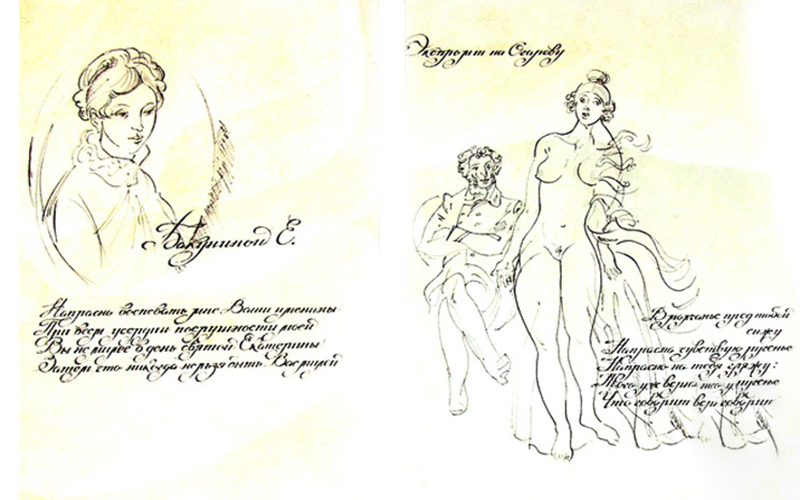 Бакуниной Е.
Напрасно воспевать мне Ваши именины
При всем усердии послушности моей
Вы не милее в день святой Екатерины
Затем что никогда нельзя быть Вас милей
Экспромт на Огареву
В молчанье пред тобой
сижу
Напрасно чувствую мученье
Напрасно на тебя гляжу:
Того уж верно
Что говорит